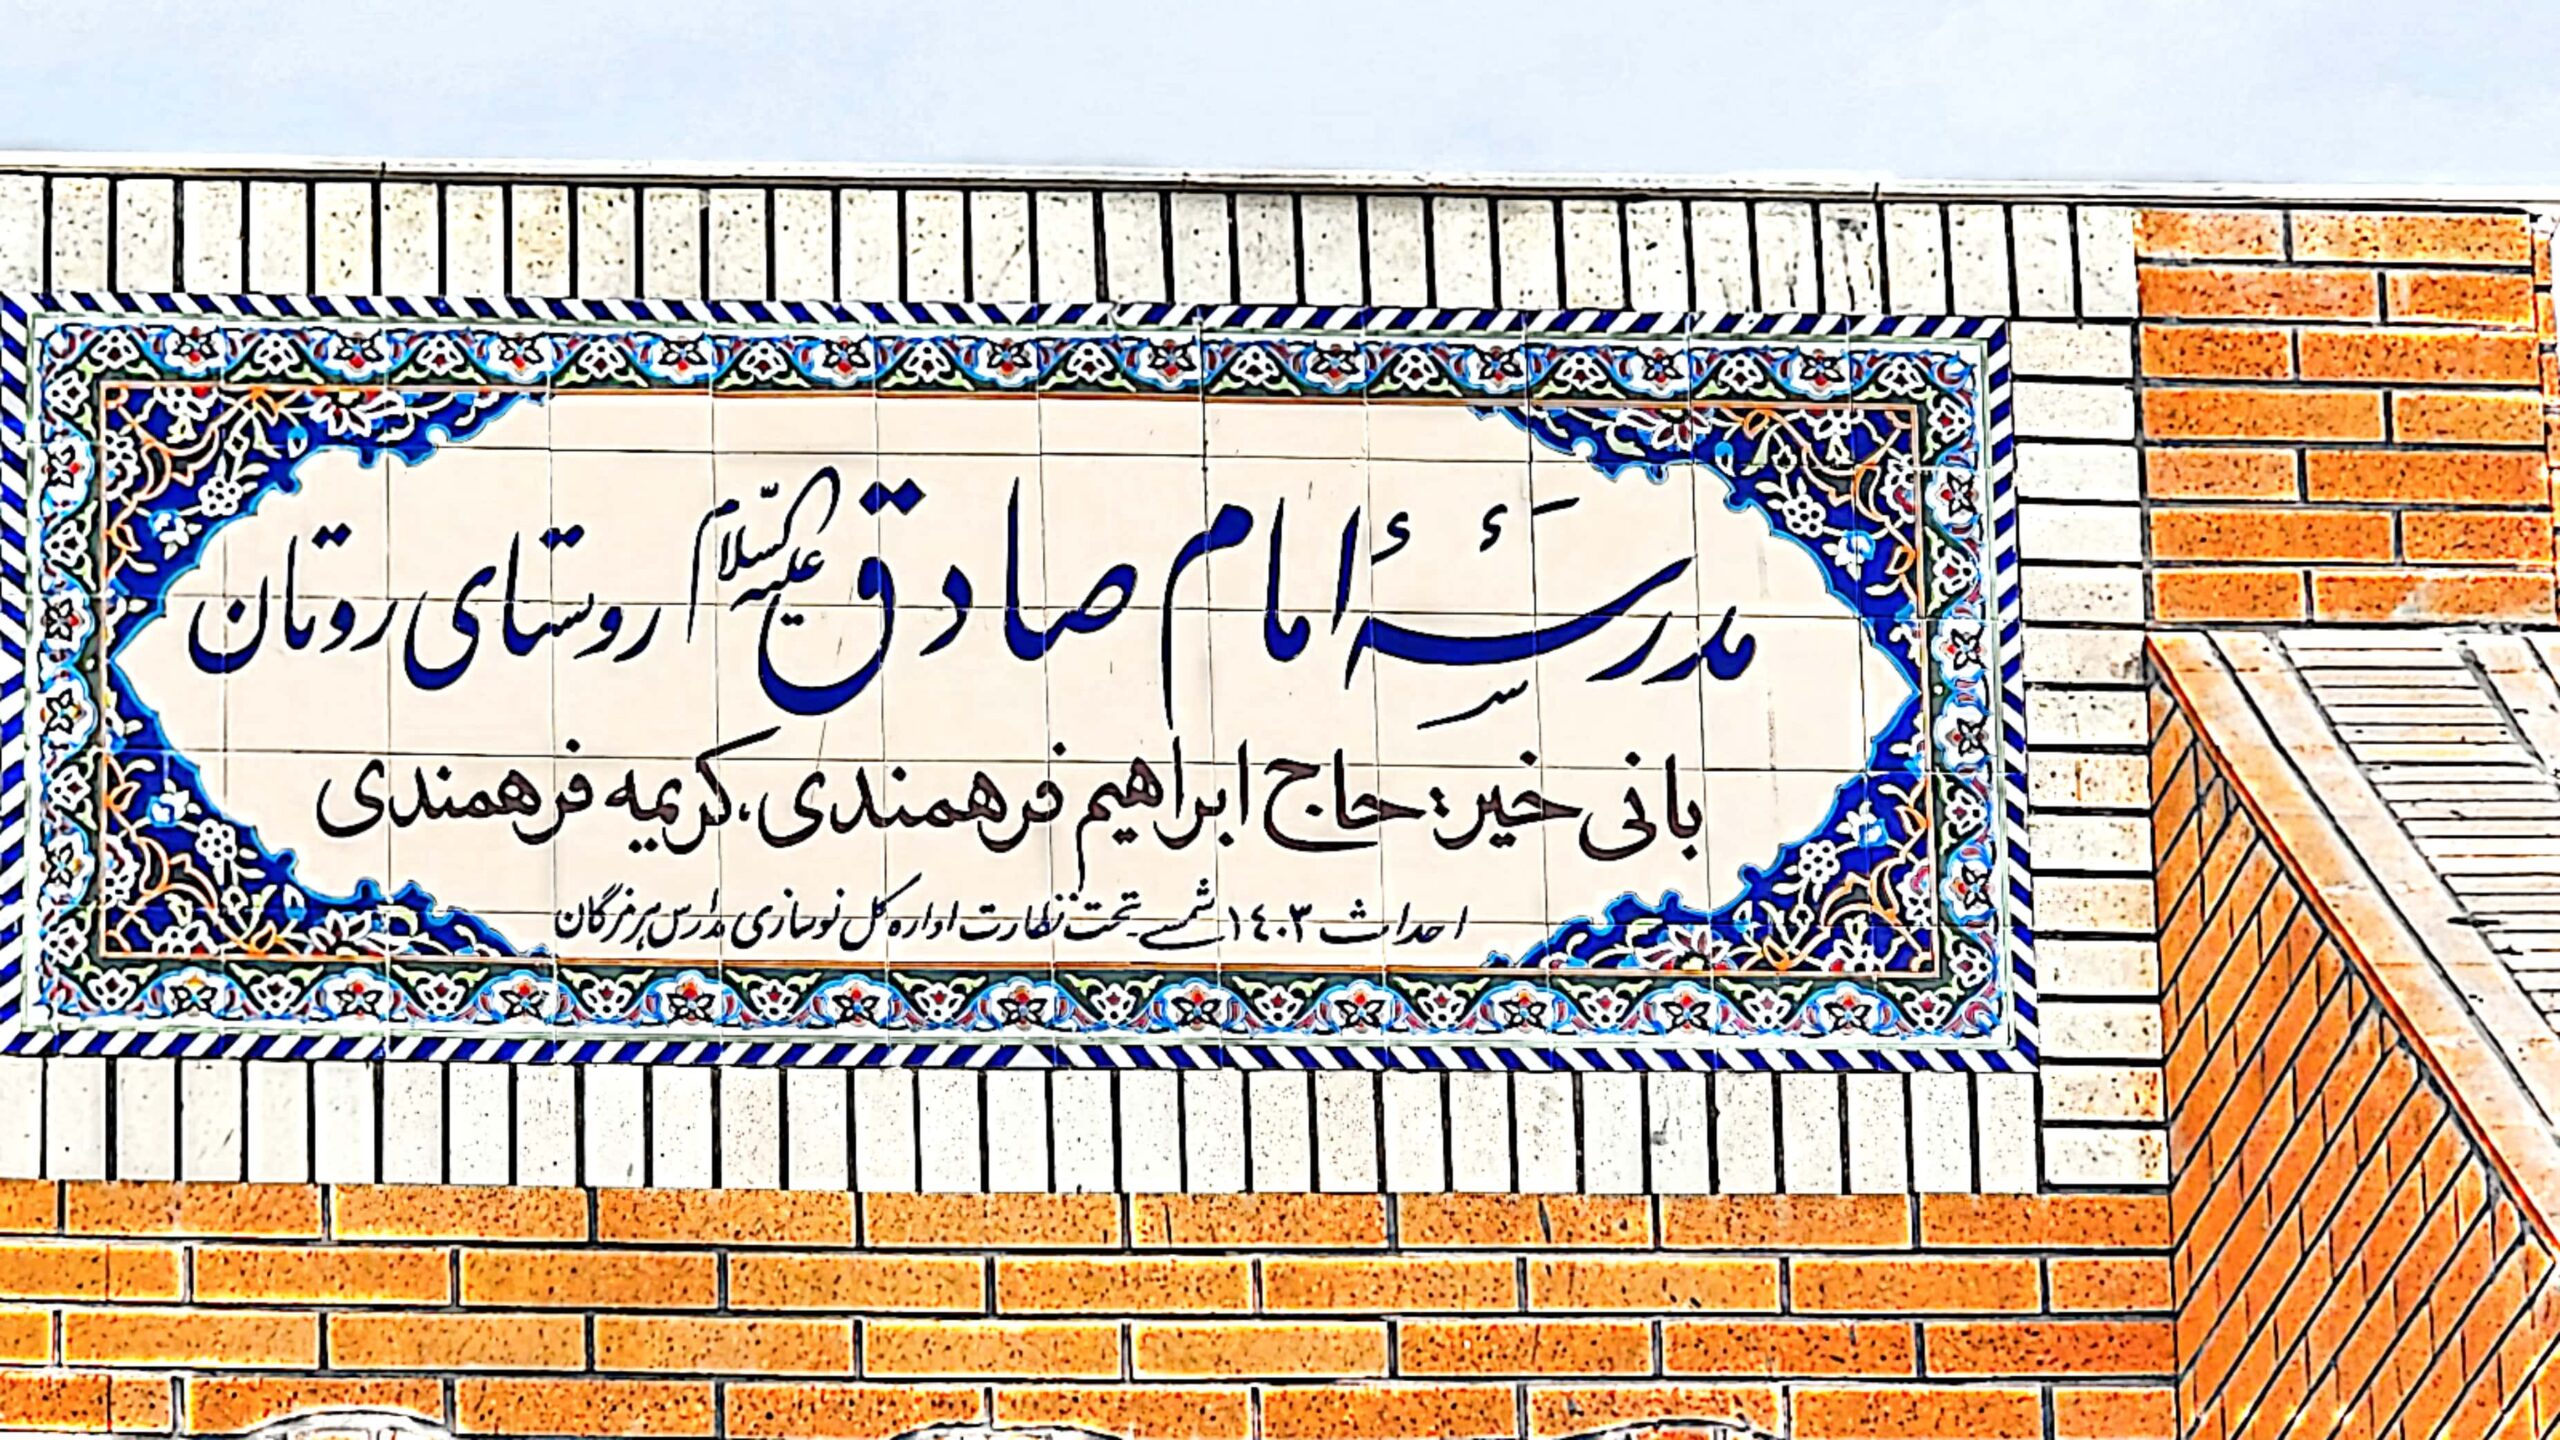 مدرسهٔ امام صادق علیه السّلام روستای روتان
بانی خیر: حاج ابراهیم فرهمندی، کریمه فرهمندی
احداث ١٤٠٣ شمسی تحت نظارت اداره کل نوسازی مدارس هرمزگان